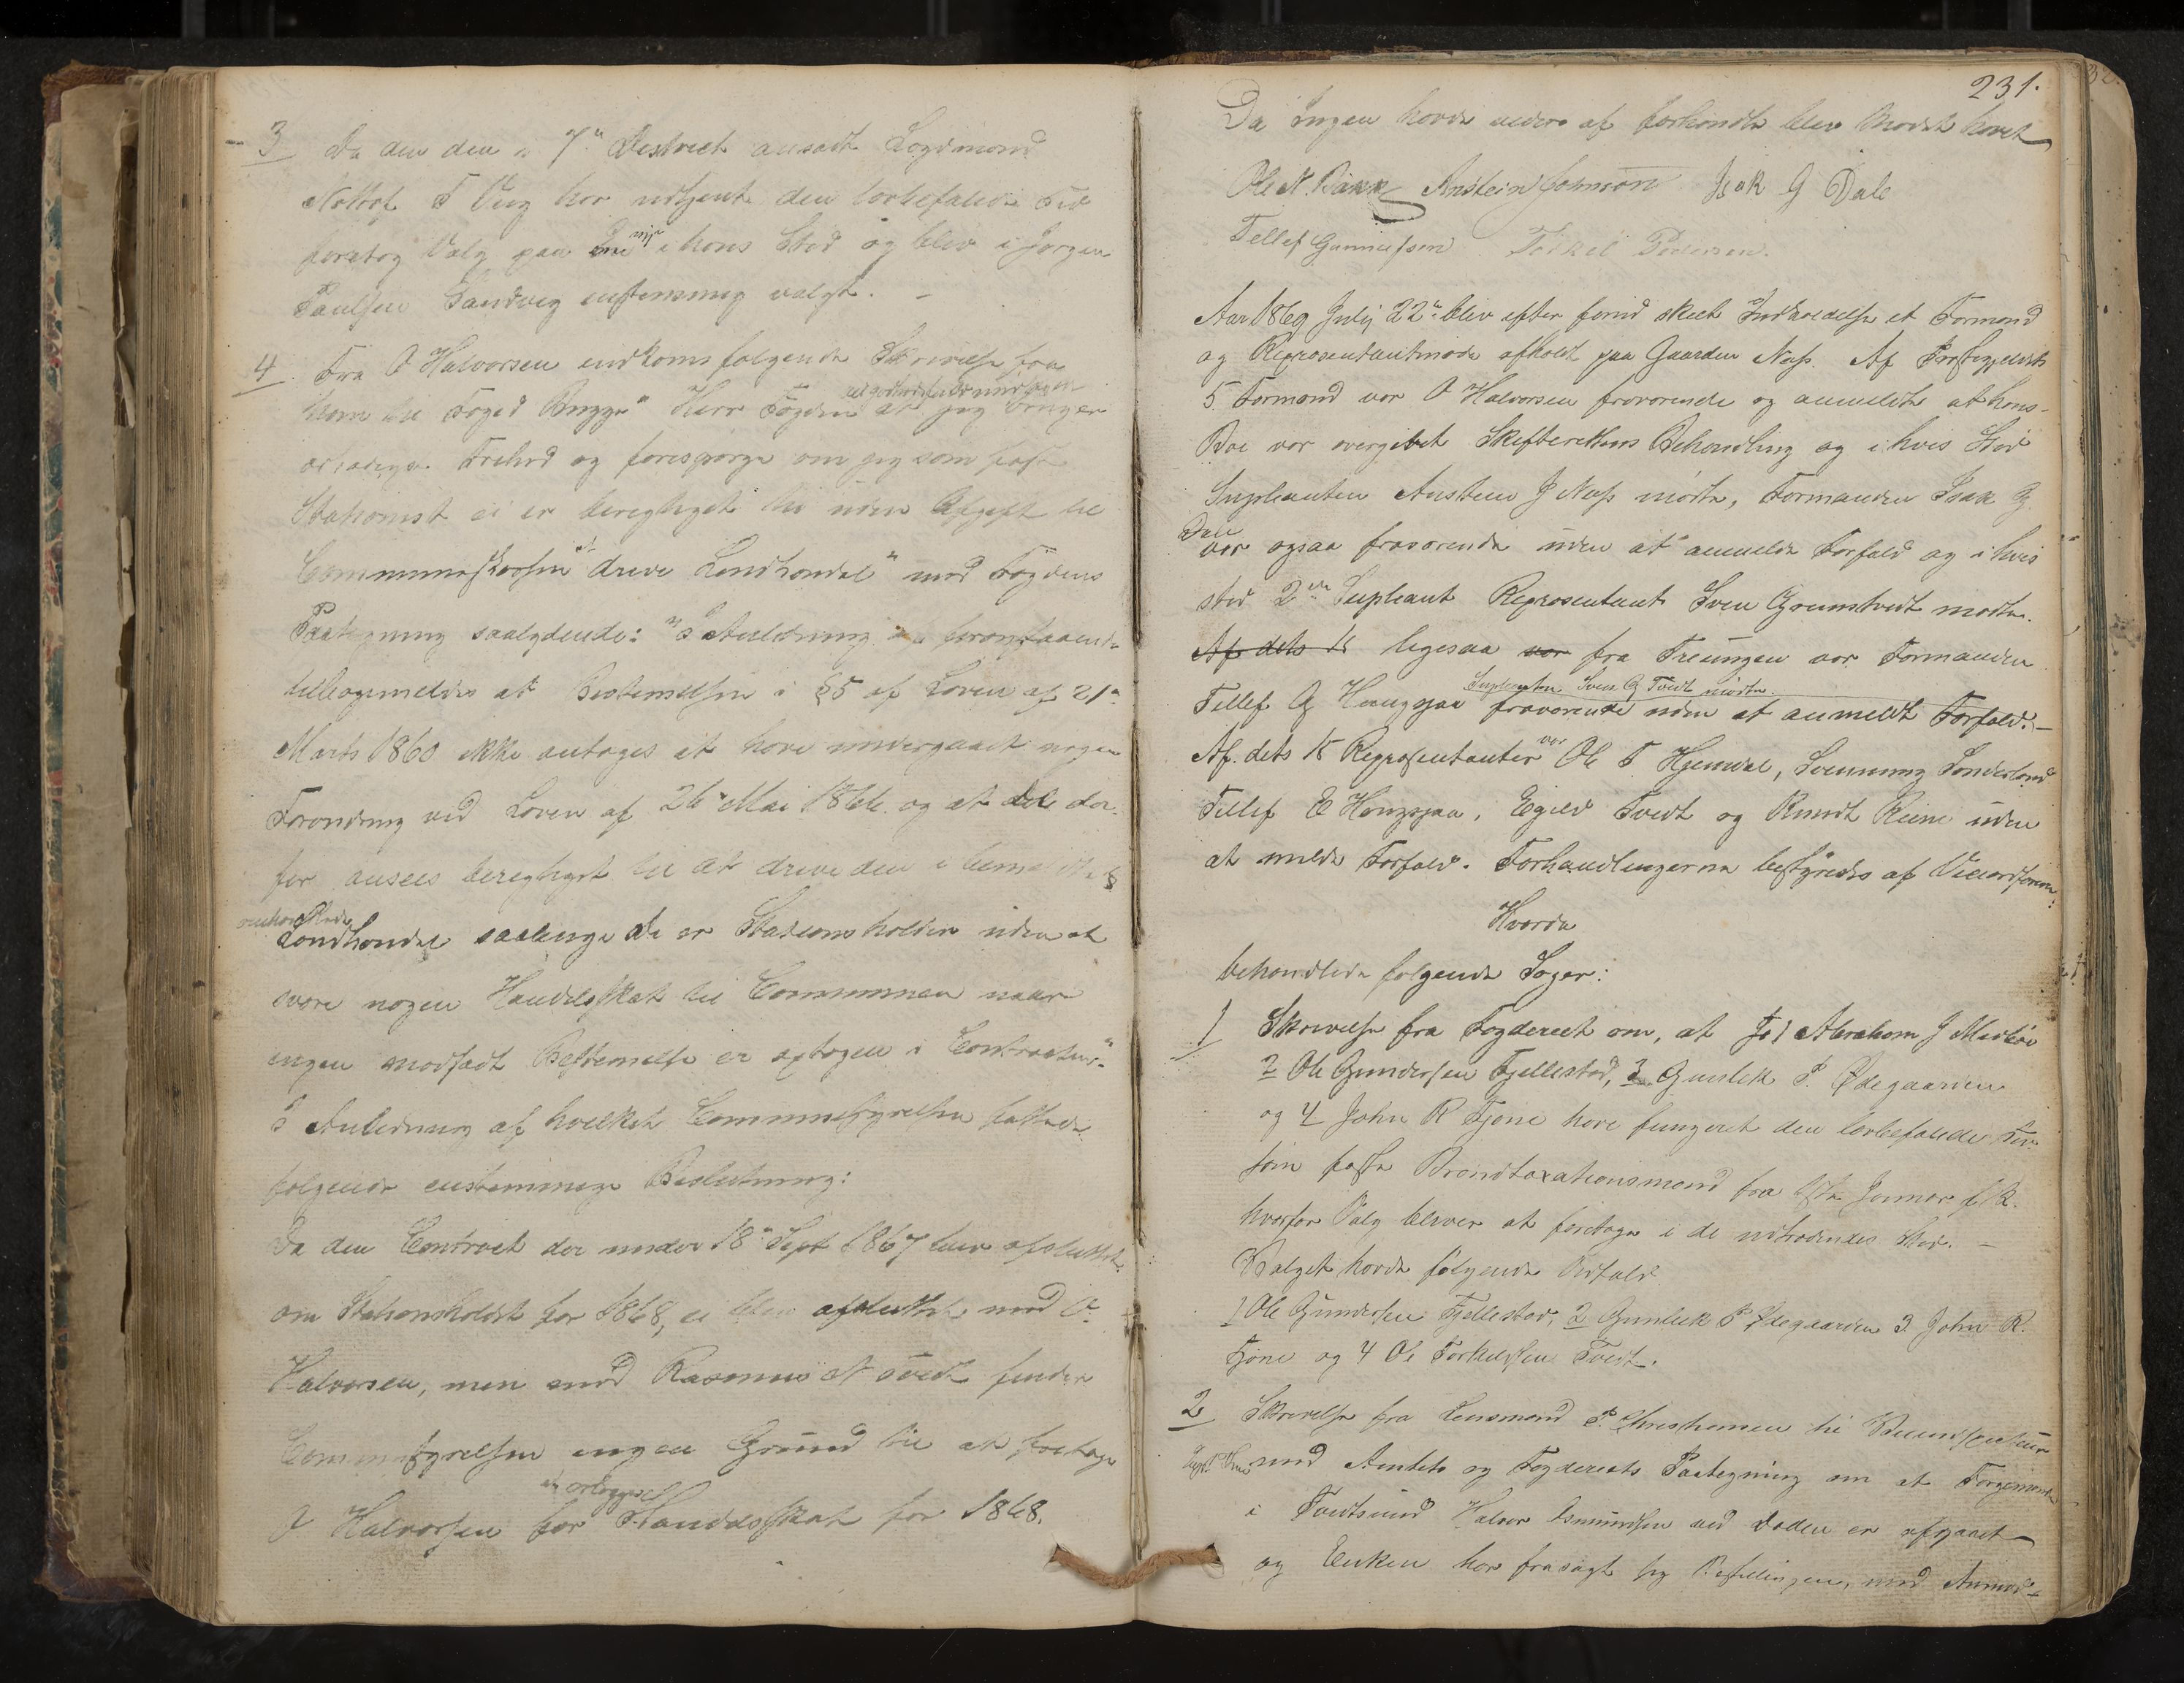 3 Da den den i 7de Destrict ansadt Logdmand
Nottof T Veg har udtjent den lovbefalede Tid
foretog Valg paa Een nye i hans Sted og blev i Jørgen
Paulsen Sandveg enstemmig valgt. –
4. Fra O Halvorsen indkom følgende Skrivelse fra
ham til Foged Bugge " Herr Fogden at jeg bruger
Frihed og forespørge om jeg som fast
Stationist ei er beregtiget til uden Afgift til
Communekassen at drive Landhandel" med Fogdens
Paategning saalydende: "I Anledning af foranstaaende
tilbagemeldes at Bestemelsen i §5 af Loven af 21de
Marts 1860 ikke antages at have undergaaet nogen
Forandring ved Loven af 26de Mai 1866. og at de der-
for ansees beregtiget til at drive den i
omhandlede
Landhandel saalenge De er Stationsholder uden at
svare nogen Handelsskat til Communen naar
ingen modsadt Bestemelse er optagen i Contracten."
I Anledning af hvilket Communestyrelsen fattede
følgende enstemmige Beslutning:
Da den Contract der under 18de Sept 1867 blev afsluttet
om Stationsholdet for 1868, ei blev afsluttet med O.
Halvorsen, men med Rasmus N Tvedt finder
Communestyrelsen ingen Grund til at fritage
den
O Halvorsen for Handelsskat for 1868.
231.
Da Ingen havde videre at forhandle blev Mødet hævet
Ole N. Bakk Anstein Johnsen Isak G Dale
Tellef Gunnulfsen Torkel Pedersen.
Aar 1869 Julij 22de blev efter forud skeet Indkaldelse et Formand
og Representantmøde afholdt paa Gaarden Næss. Af Prestegjeldets
5 Formænd var O Halvorsen fraværende og anmeldte at hans
Boe var overgivet Skifterettens Behandling og i hvis Sted
Supleanten Anstein J Næss mødte, Formanden Isak G.
Dale
var ogsaa fraværende uden at anmelde Forfald og i hvis
sted 2den Supleant Representant Sven Grimstvedt mødte.
Af dets 15 ligesaa var fra Treungen var Formanden
Supleanten Sven G Tvedt mødte
Tellef G Haugsjaa fraværende uden at anmeldt Forfald. –
Af dets 15 Representanter var Ole T Hjemdal, Svennung Sønderland
Tellef E Haugsjaa, Egeld Tvedt og Knudt Reine uden
at melde Forfald. Forhandlingerne bestyredes af Viceordfører.
Hvorda
behandlede følgende Sager:
1 Skrivelse fra Fogderiet om, at 1 Abraham J Medbøe
2 Ole Gundersen Fjellestad, 3 Gunlek P. Ødegaarden
og 4 John R Fjone have fungeret den lovbefalede Tid
som faste Brandtaxationsmænd fra 1ste Januar f. A.
hvorfor Valg bliver at foretage i de udtrædendes Sted. –
Valget havde følgende Udfald.
1 Ole Gundersen Fjellestad, 2 Gunlek P Ødegaarden 3 John R.
Fjone og 4 Ole Torkelsen Tvedt.
2 Skrivelse fra Lensmand P. Christensen til
med Amtets og Fogderiets Paategning om at
i Tvedtsund Halvor Osmundsen ved Døden er afgaaet
og Enken har frasagt sig Bestillingen, med Anmod-